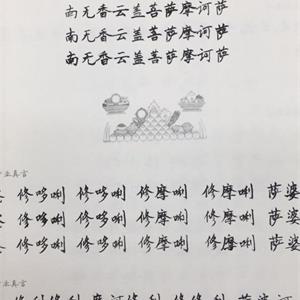 南无香云盖菩萨摩诃萨
南无香云盖菩萨摩诃萨
南无香云盖菩萨摩诃萨
业真言
修哆唎 修哆唎 修摩唎 修摩唎 萨婆
修哆唎 修哆唎 修摩唎 修摩唎 萨婆
修哆唎 修哆唎 修摩唎 修摩唎 萨婆
业真言